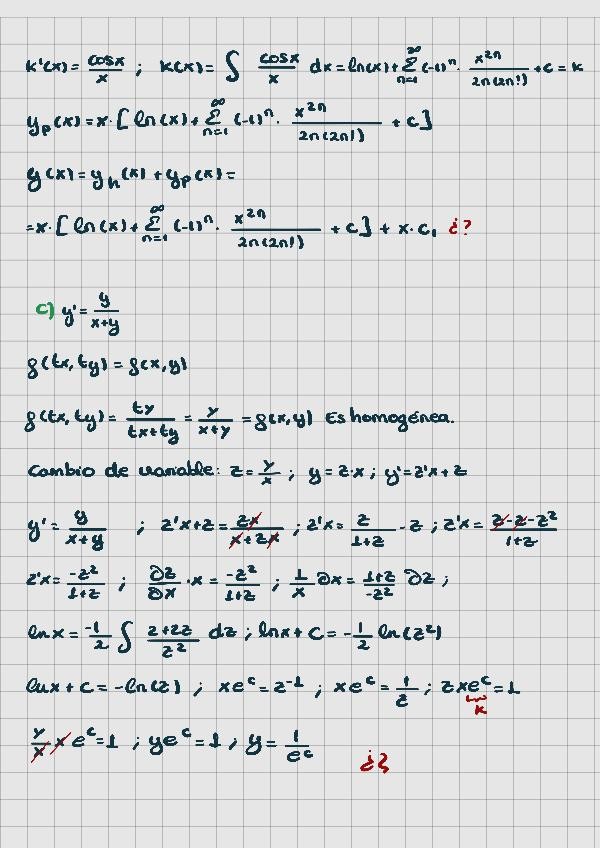 k'(x) = cosx/x ; k(x) = ∫ cosx/x dx = ln(x) + ∞Σn=1 (-1)^n · x^2n/2n(2n!) + c = k
yp(x) = x · [ ln(x) + ∞Σn=1 (-1)^n · x^2n/2n(2n!) + c ]
y(x) = yh(x) + yp(x) =
= x · [ ln(x) + ∞Σn=1 (-1)^n · x^2n/2n(2n!) + c ] + x · c1 ¿?
c) y' = y/x+y
f(tx, ty) = f(x,y)
f(tx, ty) = ty/tx+ty = y/x+y = f(x,y) Es homogénea.
Cambio de variable: z = y/x ; y = z·x ; y' = z'x + z
y' = y/x+y ; z'x+z = zx/x+zx ; z'x = z/1+z - z ; z'x = z-z-z²/1+z
z'x = -z²/1+z ; ∂z/∂x · x = -z²/1+z ; 1/x ∂x = 1+z/-z² ∂z ;
lnx = -1/2 ∫ z+2z/z² dz ; lnx + C = -1/2 ln(z²)
lnx + c = -ln(z) ; xe^c = z^-1 ; xe^c = 1/z ; zxe^c = 1
k
y/x x e^c = 1 ; ye^c = 1 ; y = 1/e^c ¿?